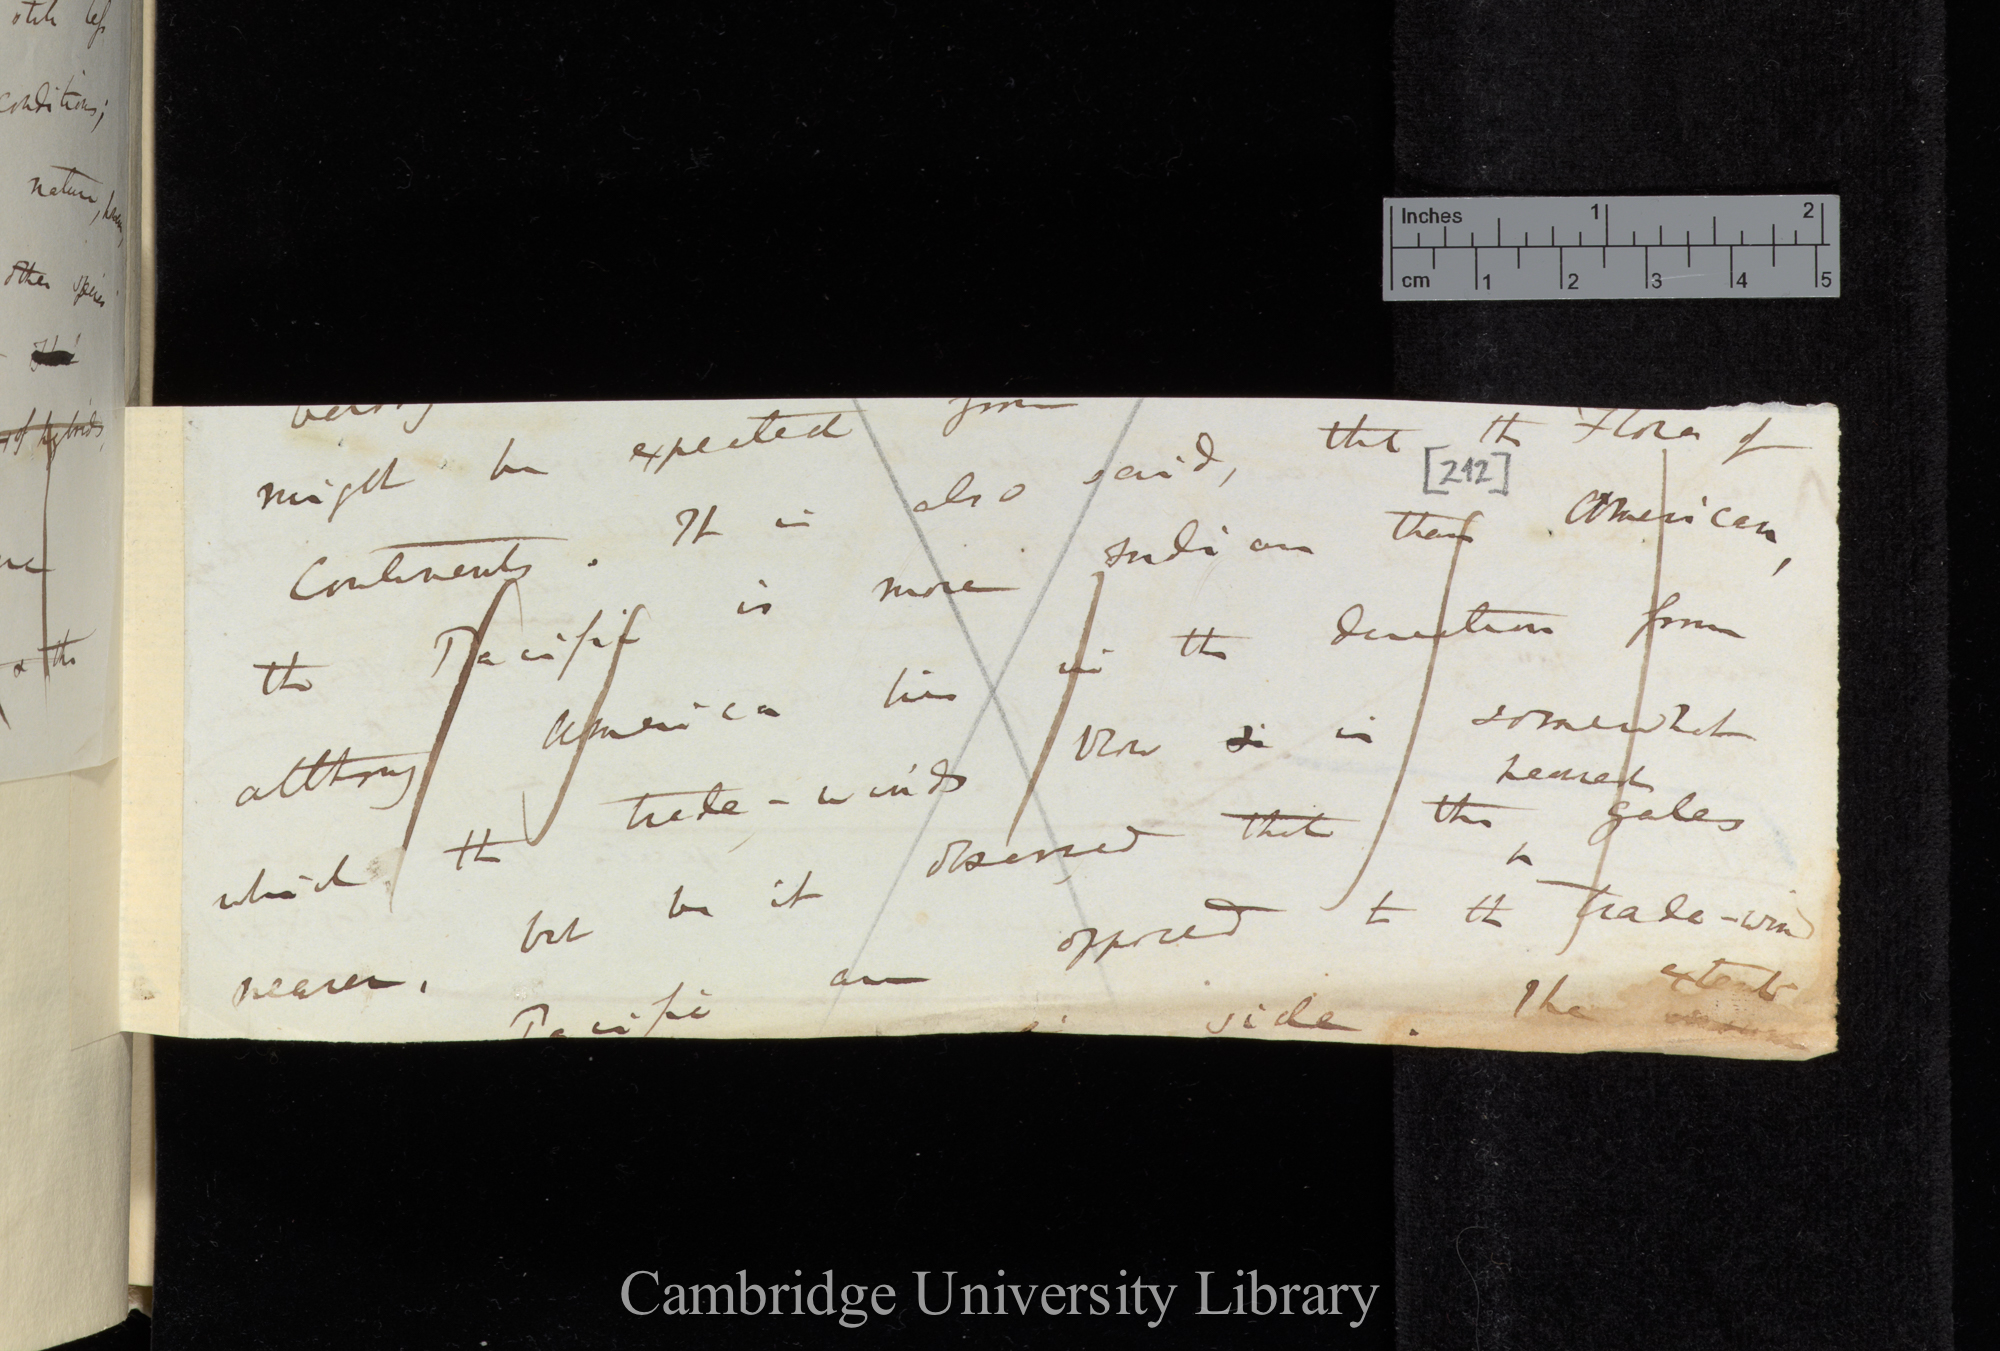 otile less
conditions;
nature,
other species
of hybrids,
& the
Inches 1 2
cm 1 2 3 4 5
from
might be expected
that the Flora of
[212]
Continents. It is also said,
the Pacific is more Indian than American,
although America lies in the direction from
which the trade-winds blow & is somewhat
nearer
nearer, but be it observed that the gales
Pacific are opposed to the trade-wind
side. The extent
Cambridge University Library